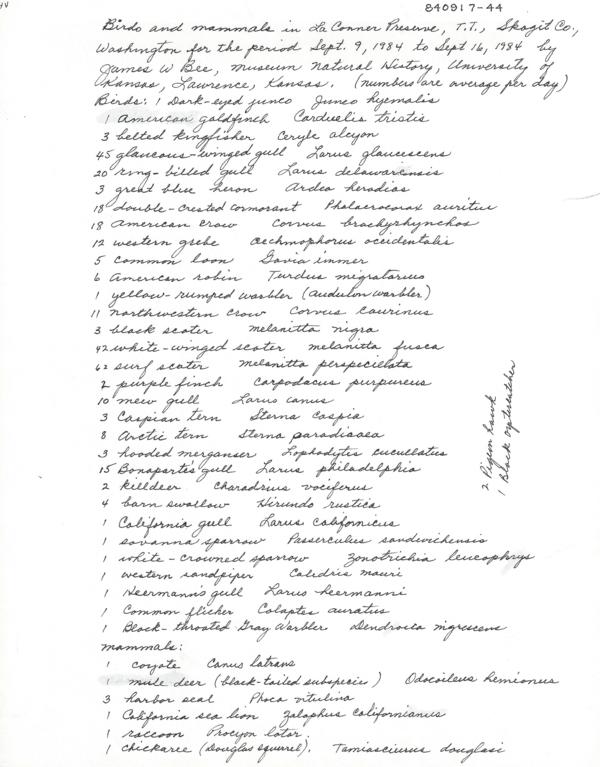 840917-44
Birds and mammals in La Conner Preserve, T.T., Skagit Co.,
Washington for the period Sept. 9, 1984 to Sept 16, 1984 by
James W Bee, Museum Natural History, University of
Kansas, Lawrence, Kansas. (numbers are average per day)
Birds: 1 Dark-eyed junco Junco hyemalis
1 American goldfinch Carduelis tristis
3 belted kingfisher Ceryle alcyon
45 glaucous-winged gull Larus glaucescens
20 ring-billed gull Larus delawarensis
3 great blue heron Ardea herodias
18 double-crested cormorant Phalacrocorax auritus
18 American crow Corvus brachyrhynchos
12 western grebe Aechmophorus occidentalis
5 common loon Gavia immer
6 American robin Turdus migratorius
1 yellow-rumped warbler (Audubon warbler)
11 northwestern crow Corvus caurinus
3 black scoter melanitta nigra
42 white-winged scoter melanitta fusca
62 surf scoter melanitta perspecillata
2 purple finch Carpodacus purpureus
10 mew gull Larus canus
3 Caspian tern Sterna caspia
8 Arctic tern Sterna paradisaea
3 hooded merganser Lophodytes cucullatus
15 Bonaparte's gull Larus philadelphia
2 killdeer Charadrius vociferus
4 barn swallow Hirundo rustica
1 California gull Larus californicus
1 savanna sparrow Passerculus sandwichensis
1 white-crowned sparrow Zonotrichia leucophrys
1 western sandpiper Calidris mauri
1 Heermann's gull Larus heermanni
1 Common flicker Colaptes auratus
1 Black-throated Gray Warbler Dendroica nigrescens
2 Pigeon hawk
1 Black oystercatcher
mammals:
1 coyote Canus latrans
1 mule deer (black-tailed subspecies) Odocoileus hemionus
3 harbor seal Phoca vitulina
1 California sea lion Zalophus californianus
1 raccoon Procyon lotor.
1 chickaree (Douglas squirrel). Tamiasciurus douglasi